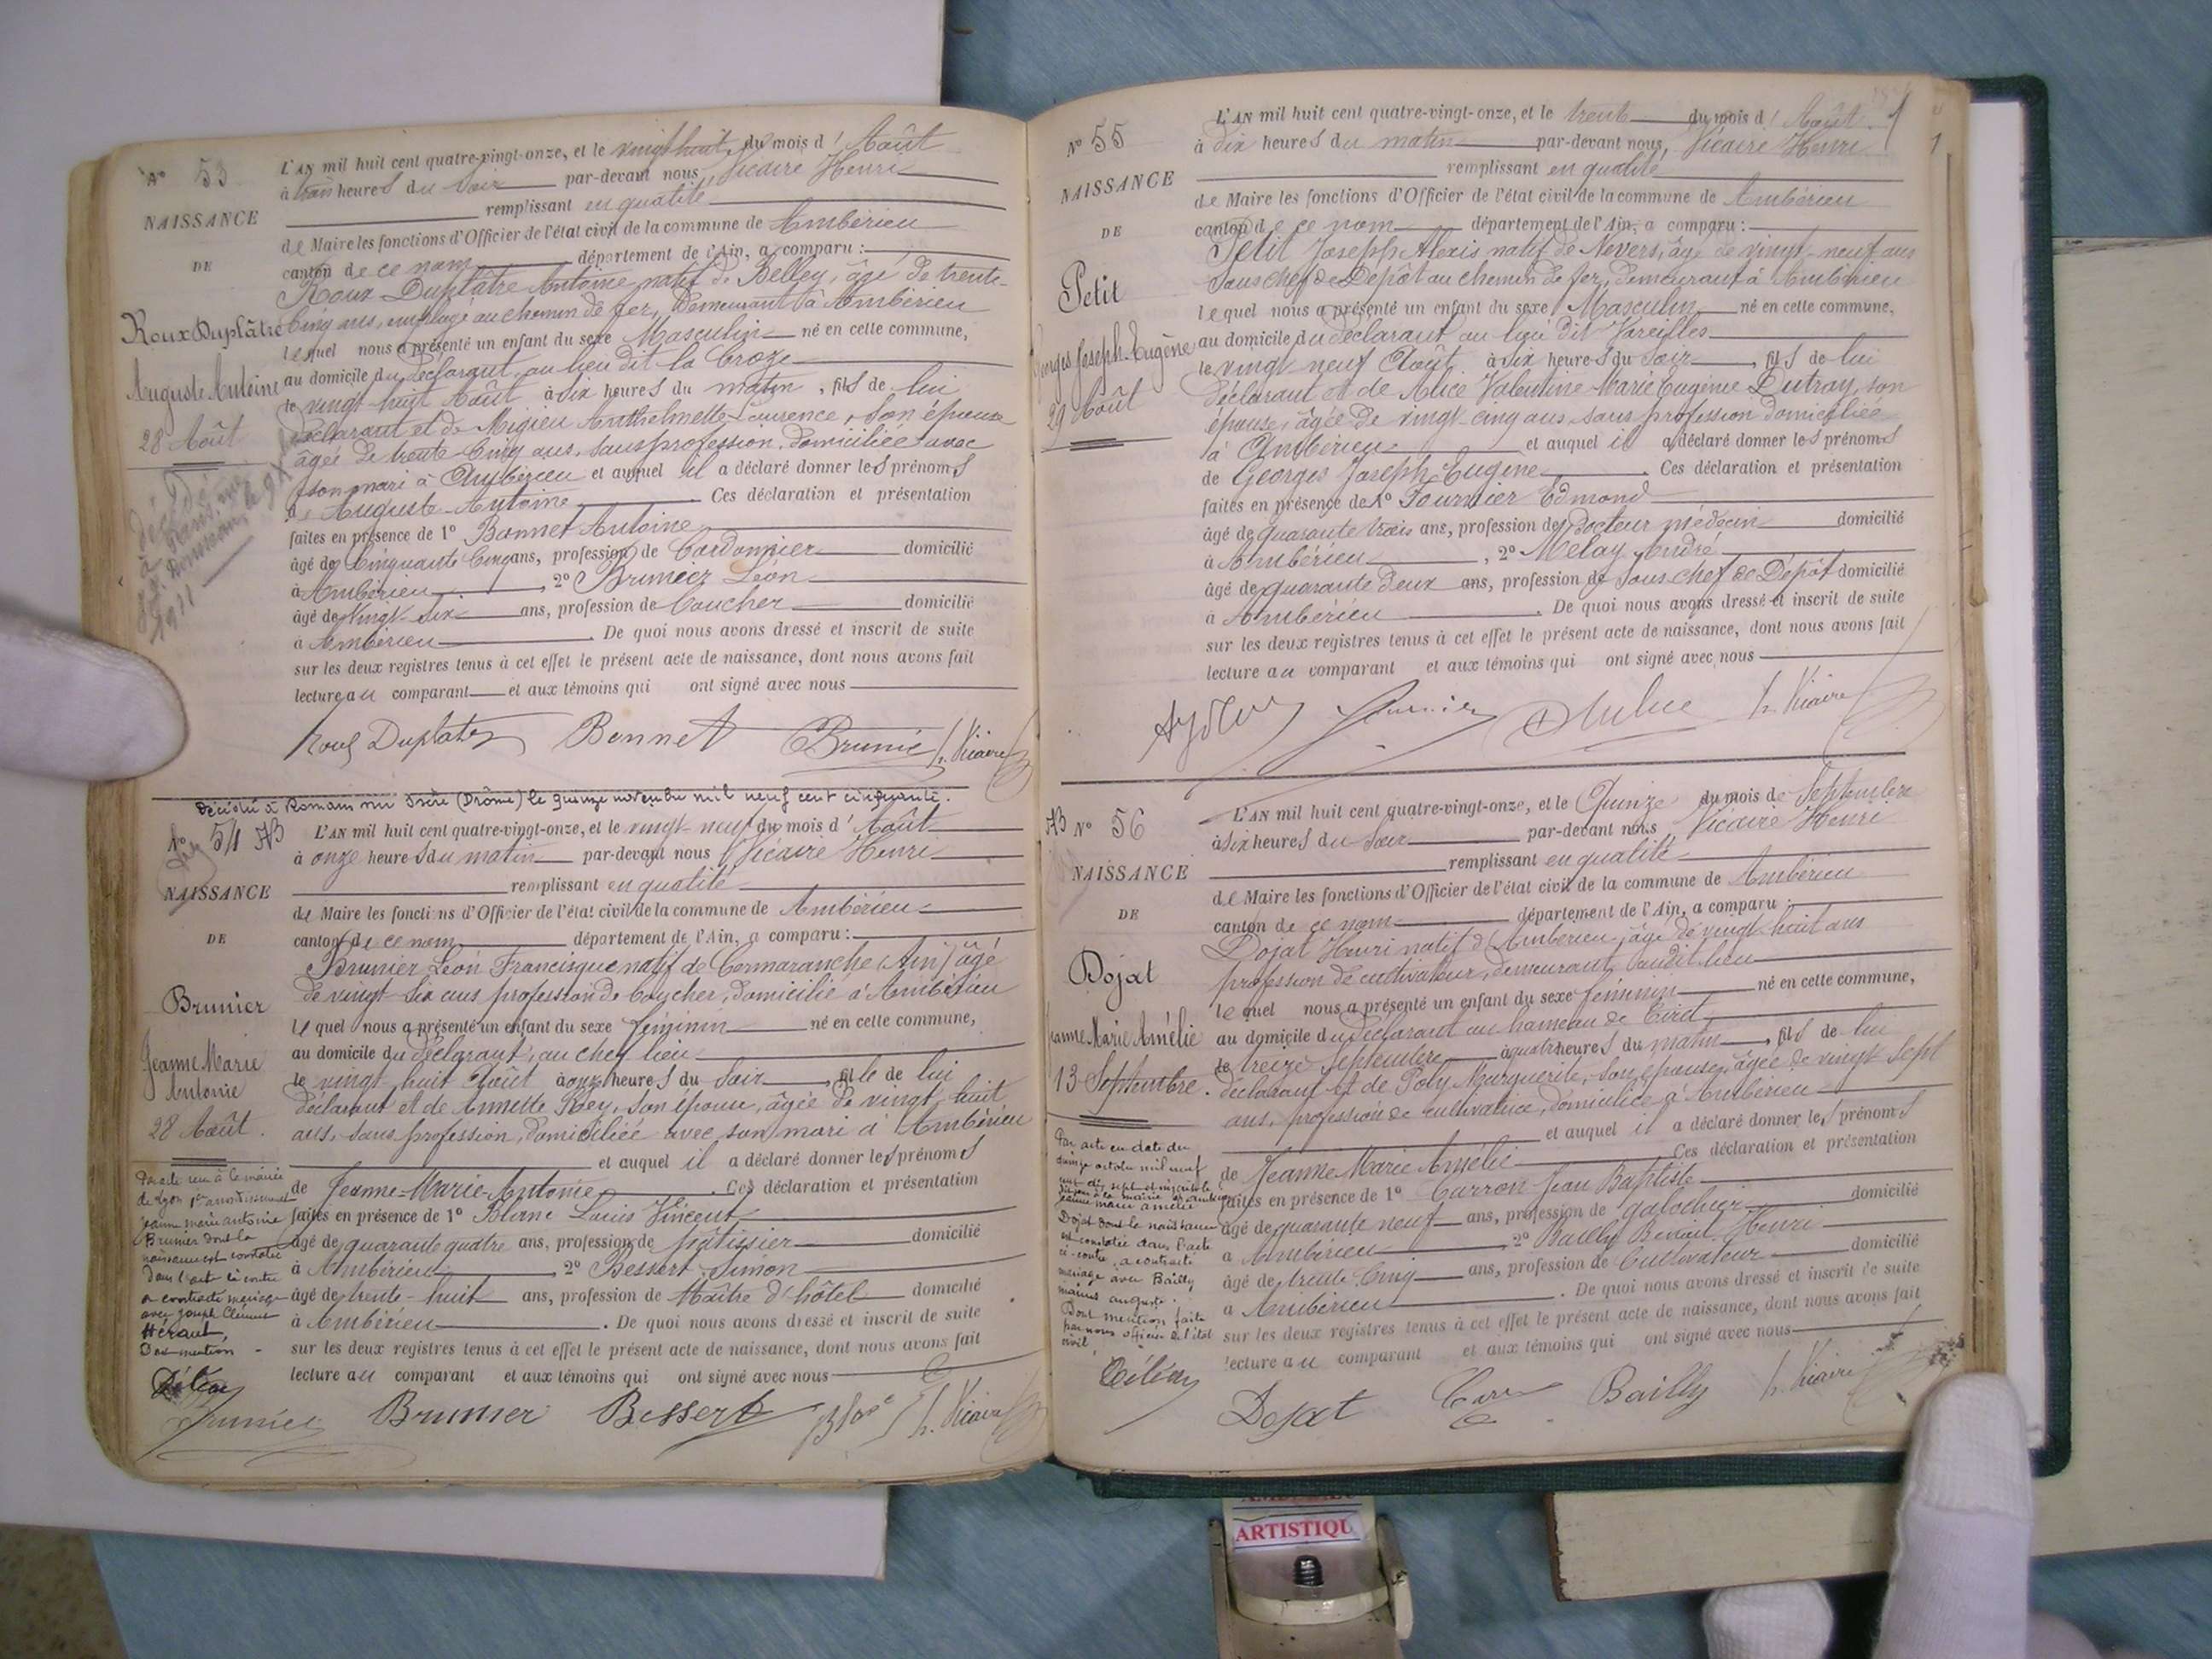 N° 53
NAISSANCE
DE
Roux Duplâtre
Auguste Antoine
28 Août
L'AN mil huit cent quatre-vingt-onze, et le vingt huit du mois d' Août
à trois heures du soir par-devant nous, Vicaire Henri
remplissant en qualité
de Maire les fonctions d'Officier de l'état civil de la commune de Ambérieu
canton de ce nom département de l'Ain, a comparu :
Roux Duplâtre Antoine natif de Belley, âgé de trente-
cinq ans, employé au chemin de fer, demeurant à Ambérieu
lequel nous a présenté un enfant du sexe Masculin né en cette commune,
au domicile du déclarant au lieu dit la Croze
le vingt-huit Août à six heures du matin, fils de lui
déclarant et de Migieu Anthelmette Laurence, son épouse
âgée de trente-cinq ans, sans profession, domiciliée avec
son mari à Ambérieu et auquel il a déclaré donner les prénoms
de Auguste-Antoine Ces déclaration et présentation
faites en présence de 1° Bonnet Antoine
âgé de cinquante cinq ans, profession de Cordonnier domicilié
à Ambérieu, 2° Brunier Léon
âgé de vingt-six ans, profession de boucher domicilié
à Ambérieu. De quoi nous avons dressé et inscrit de suite
sur les deux registres tenus à cet effet le présent acte de naissance, dont nous avons fait
lecture au comparant et aux témoins qui ont signé avec nous
Roux Duplatre Bonnet Brunier h. Vicaire
Décédé à Romans sur Isère (Drôme) le quinze novembre mil neuf cent cinquante.
N° 54
NAISSANCE
DE
Brunier
Jeanne Marie
Antonie
28 Août.
L'AN mil huit cent quatre-vingt-onze, et le vingt-neuf du mois d' Août
à onze heures du matin par-devant nous Vicaire Henri
remplissant en qualité
de Maire les fonctions d'Officier de l'état civil de la commune de Ambérieu
canton de ce nom département de l'Ain, a comparu :
Brunier Léon Francisque natif de Cormaranche (Ain) âgé
de vingt-six ans profession de boucher, domicilié à Ambérieu
lequel nous a présenté un enfant du sexe féminin né en cette commune,
au domicile du déclarant, au chef lieu
le vingt-huit Août à onze heures du soir, fille de lui
déclarant et de Annette Rey, son épouse, âgée de vingt-huit
ans, sans profession, domiciliée avec son mari à Ambérieu
et auquel il a déclaré donner les prénoms
de Jeanne-Marie-Antonie. Ces déclaration et présentation
faites en présence de 1° Blanc Louis Vincent
âgé de quarante quatre ans, profession de pâtissier domicilié
à Ambérieu, 2° Bessert Simon
âgé de trente-huit ans, profession de Maître d'hôtel domicilié
à Ambérieu. De quoi nous avons dressé et inscrit de suite
sur les deux registres tenus à cet effet le présent acte de naissance, dont nous avons fait
lecture au comparant et aux témoins qui ont signé avec nous
de Lyon 1er arrondissement
Jeanne marie antonie
Brunier dont la
naissance est constatée
dans l'acte ci contre
a contracté mariage
avec Joseph Clément
Héraut
Dont mention
Brunier Bessert h. Vicaire
N° 55
NAISSANCE
DE
Petit
Georges Joseph-Eugène
29 Août
L'AN mil huit cent quatre-vingt-onze, et le trente du mois d' Août
à dix heures du matin par-devant nous, Vicaire Henri
remplissant en qualité
de Maire les fonctions d'Officier de l'état civil de la commune de Ambérieu
canton de ce nom département de l'Ain, a comparu :
Petit Joseph Alexis natif de Nevers, âgé de vingt-neuf ans
Sous chef de Dépôt au chemin de fer, demeurant à Ambérieu
lequel nous a présenté un enfant du sexe Masculin né en cette commune,
au domicile du déclarant au lieu dit Vareilles
le vingt neuf Août à six heures du soir, fils de lui
déclarant et de Alice Valentine Marie Eugénie Dutray, son
épouse, âgée de vingt-cinq ans sans profession domiciliée
à Ambérieu et auquel il a déclaré donner les prénoms
de Georges Joseph Eugène. Ces déclaration et présentation
faites en présence de 1° Fournier Edmond
âgé de quarante trois ans, profession de Docteur médecin domicilié
à Ambérieu, 2° Melay André
âgé de quarante deux ans, profession de Sous chef de Dépôt domicilié
à Ambérieu. De quoi nous avons dressé et inscrit de suite
sur les deux registres tenus à cet effet le présent acte de naissance, dont nous avons fait
lecture au comparant et aux témoins qui ont signé avec nous
h. Vicaire
N° 56
NAISSANCE
DE
Dojat
Jeanne Marie Amélie
13 Septembre.
L'AN mil huit cent quatre-vingt-onze, et le Quinze du mois de Septembre
à six heures du soir par-devant nous Vicaire Henri
remplissant en qualité
de Maire les fonctions d'Officier de l'état civil de la commune de Ambérieu
canton de ce nom département de l'Ain, a comparu :
Dojat Henri natif d'Ambérieu, âgé de vingt-huit ans
profession de cultivateur, demeurant audit lieu
lequel nous a présenté un enfant du sexe féminin né en cette commune,
au domicile du déclarant au hameau de Tiret
le treize Septembre à quatre heures du matin, fils de lui
déclarant et de Poly Marguerite, son épouse, âgée de vingt Sept
ans, profession de cultivatrice, domiciliée à Ambérieu
et auquel il a déclaré donner les prénoms
de Jeanne Marie Amélie Ces déclaration et présentation
faites en présence de 1° Curron Jean Baptiste
âgé de quarante neuf ans, profession de galochier domicilié
à Ambérieu 2° Bailly Benoit Henri
âgé de trente cinq ans, profession de Cultivateur domicilié
à Ambérieu. De quoi nous avons dressé et inscrit de suite
sur les deux registres tenus à cet effet le présent acte de naissance, dont nous avons fait
lecture au comparant et aux témoins qui ont signé avec nous
Par acte en date du
Dojat dont la naissance
est constatée dans l'acte
ci-contre, a contracté
mariage avec Bailly
Dont mention faite
par nous officier de l'état
civil,
Dojat Bailly h. Vicaire
ARTISTIQU